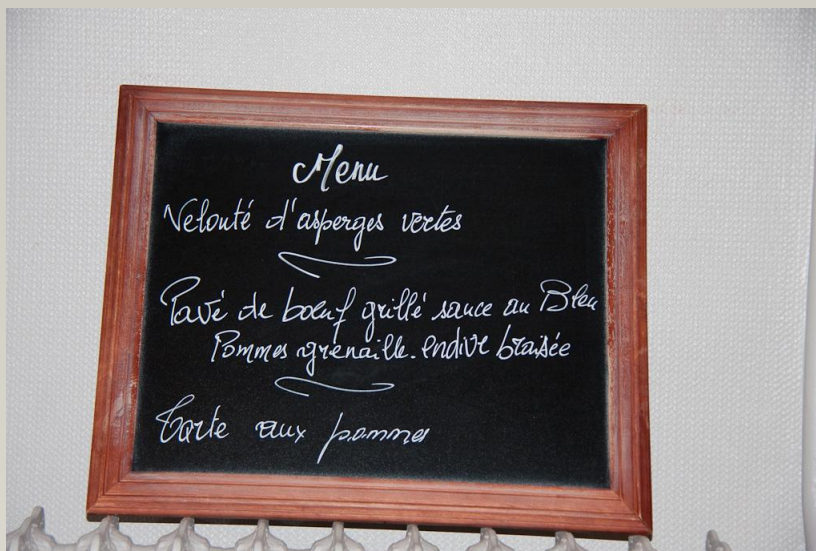 Menu
Velouté d'asperges vertes
Pavé de bœuf grillé sauce au Bleu
Pommes grenaille. endive braisée
Tarte aux pommes